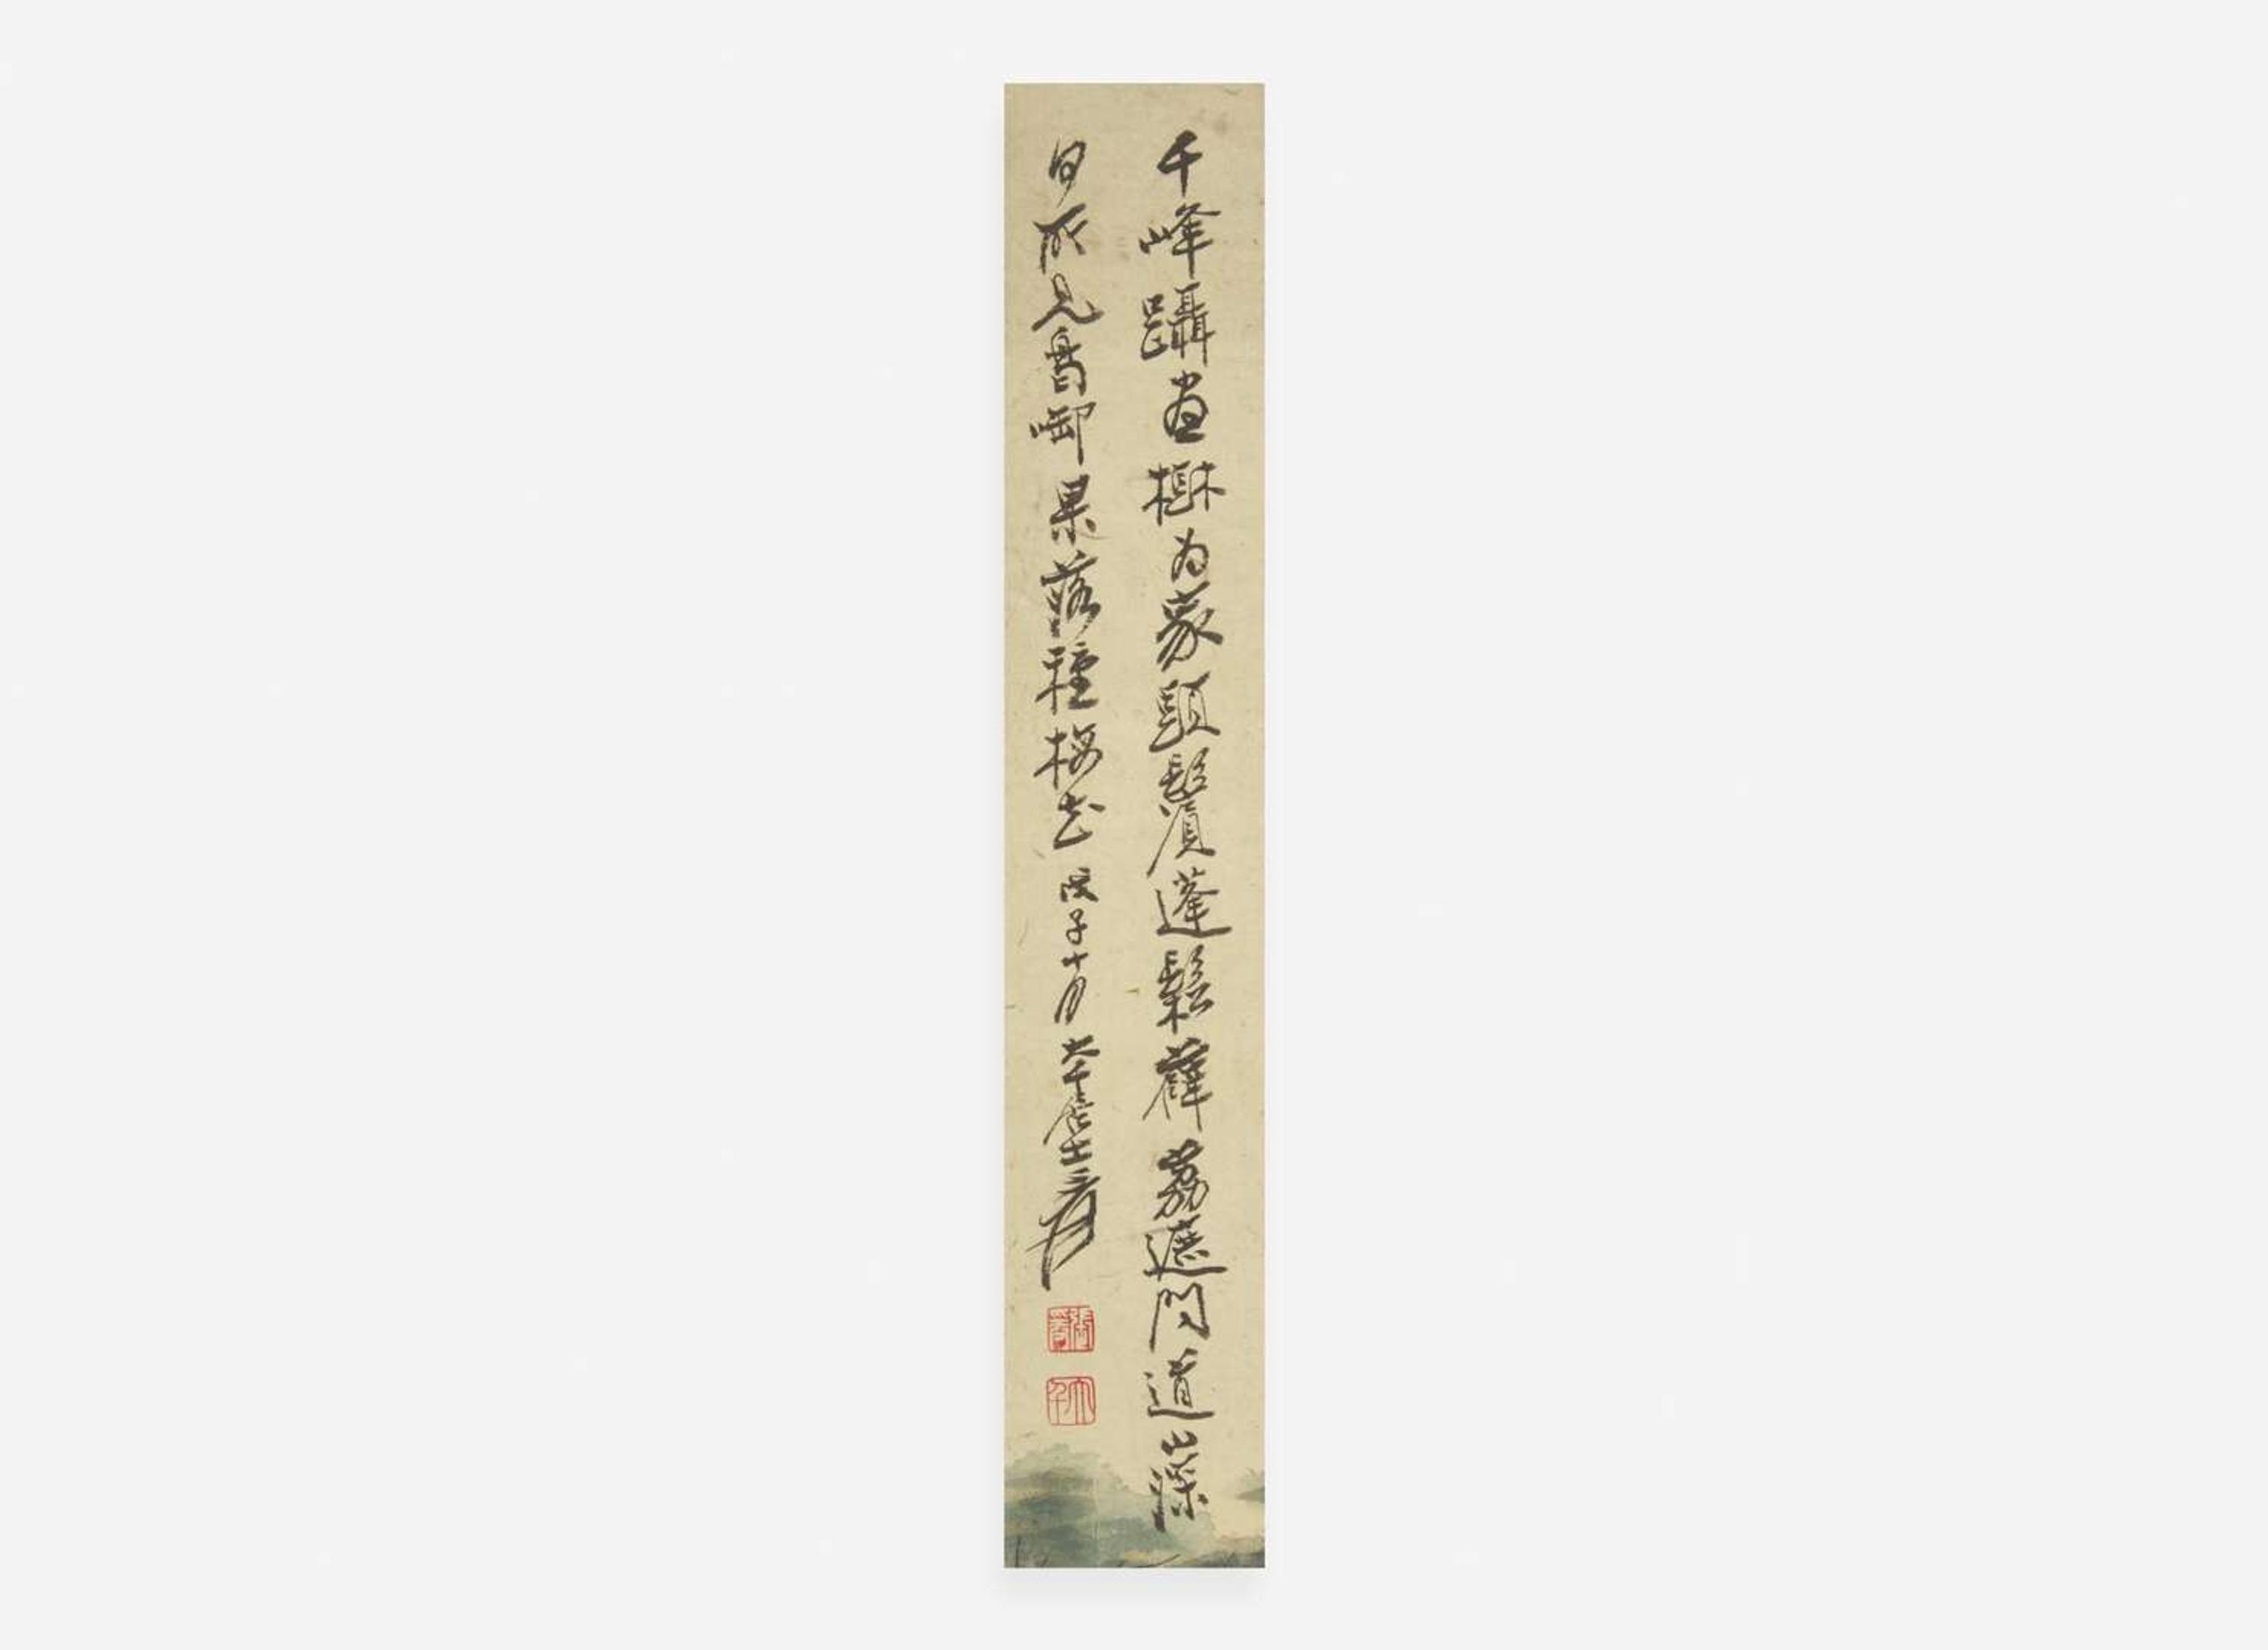 千峰躡盡樹為家頭鬢蓬鬆薜荔遮問道山深
何所見鳥啣果落種梅花 子十月 大千居士爰
張爰
大千